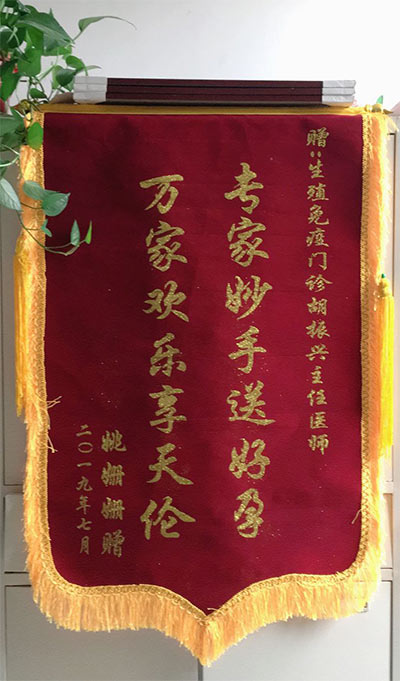 赠:生殖免疫门诊胡振兴主任医师
专家妙手送好孕
万家欢乐享天伦
姚姗姗赠
二〇一九年七月